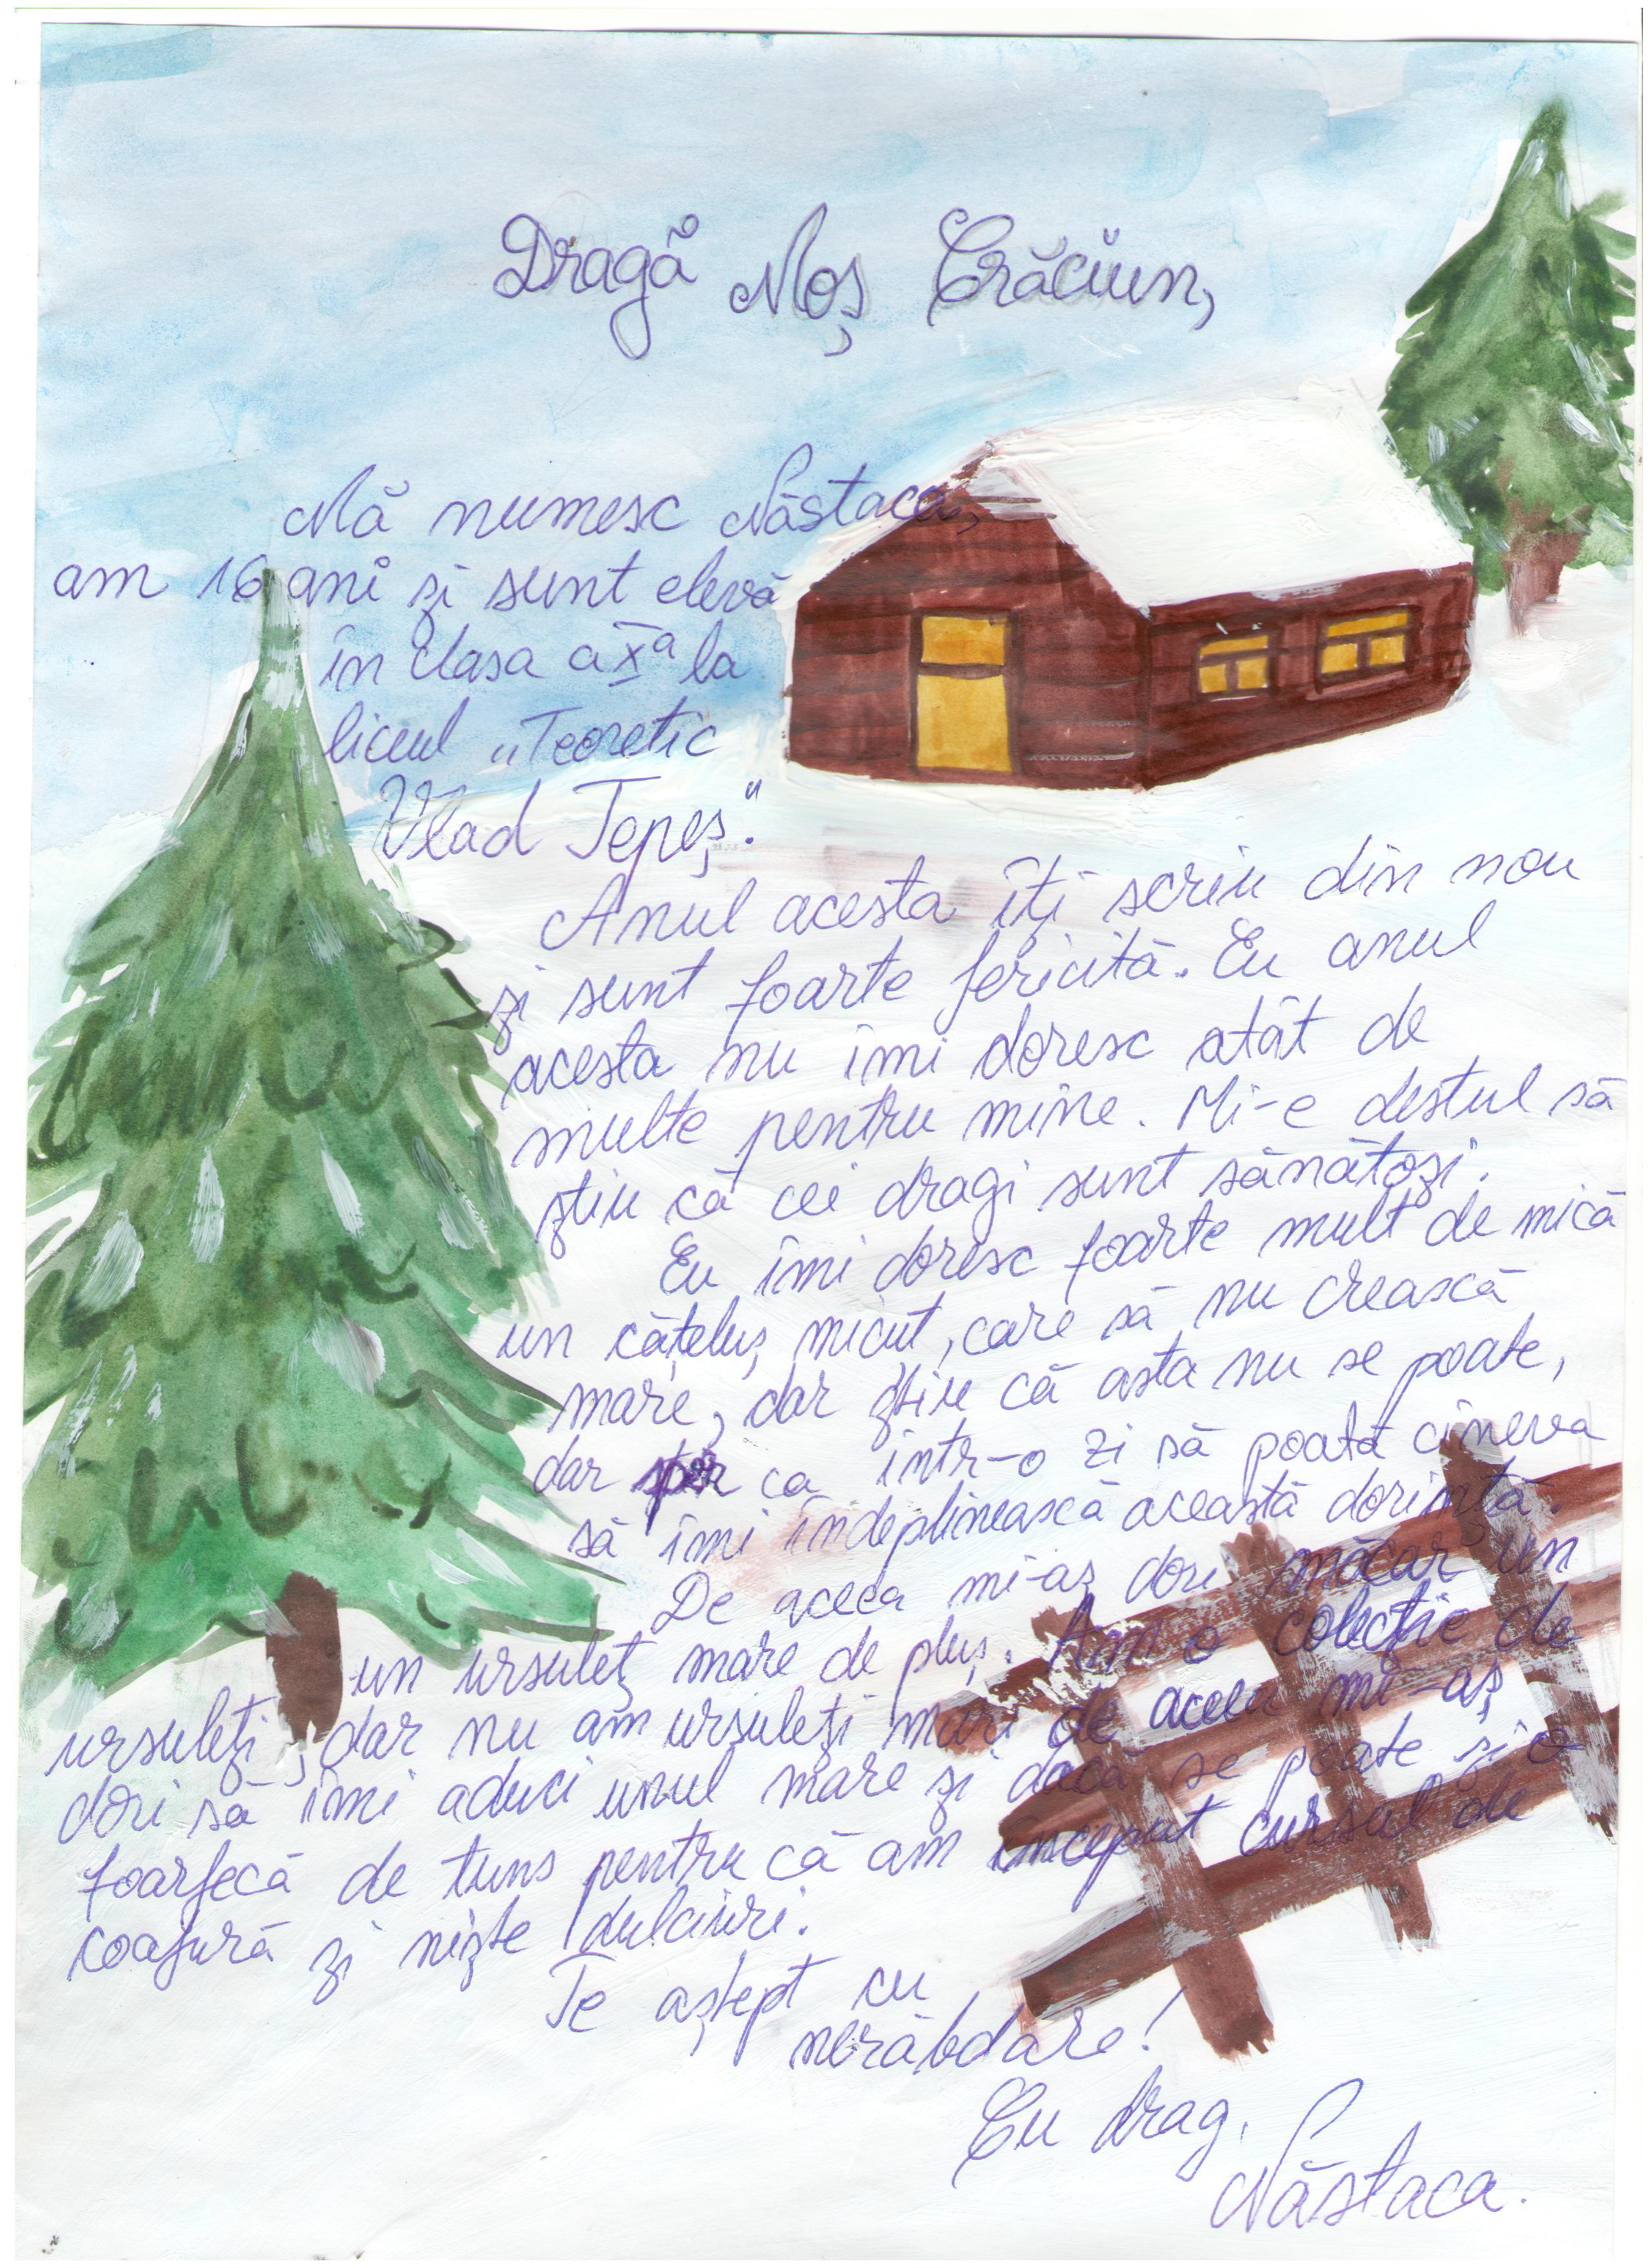 Dragă Moș Crăciun,
Mă numesc Năstaca,
am 16 ani și sunt elevă
în clasa a Xª la
liceul „Teoretic
Vlad Țepeș."
Anul acesta îți scriu din nou
și sunt foarte fericită. Eu anul
acesta nu îmi doresc atât de
multe pentru mine. Mi-e destul să
știu că cei dragi sunt sănătoși.
Eu îmi doresc foarte mult de mică
un cățeluș micut, care să nu crească
mare, dar știu că asta nu se poate,
dar sper ca într-o zi să poată cineva
să îmi îndeplinească această dorință.
De aceea mi-aș dori măcar un
un ursuleț mare de pluș. Am o colecție de
ursuleți, dar nu am ursuleți mari de aceea mi-aș
dori să îmi aduci unul mare și dacă se poate și o
foarfecă de tuns pentru că am început cursul de
coafură și niște dulciuri.
Te aștept cu
nerăbdare!
Cu drag,
Năstaca.